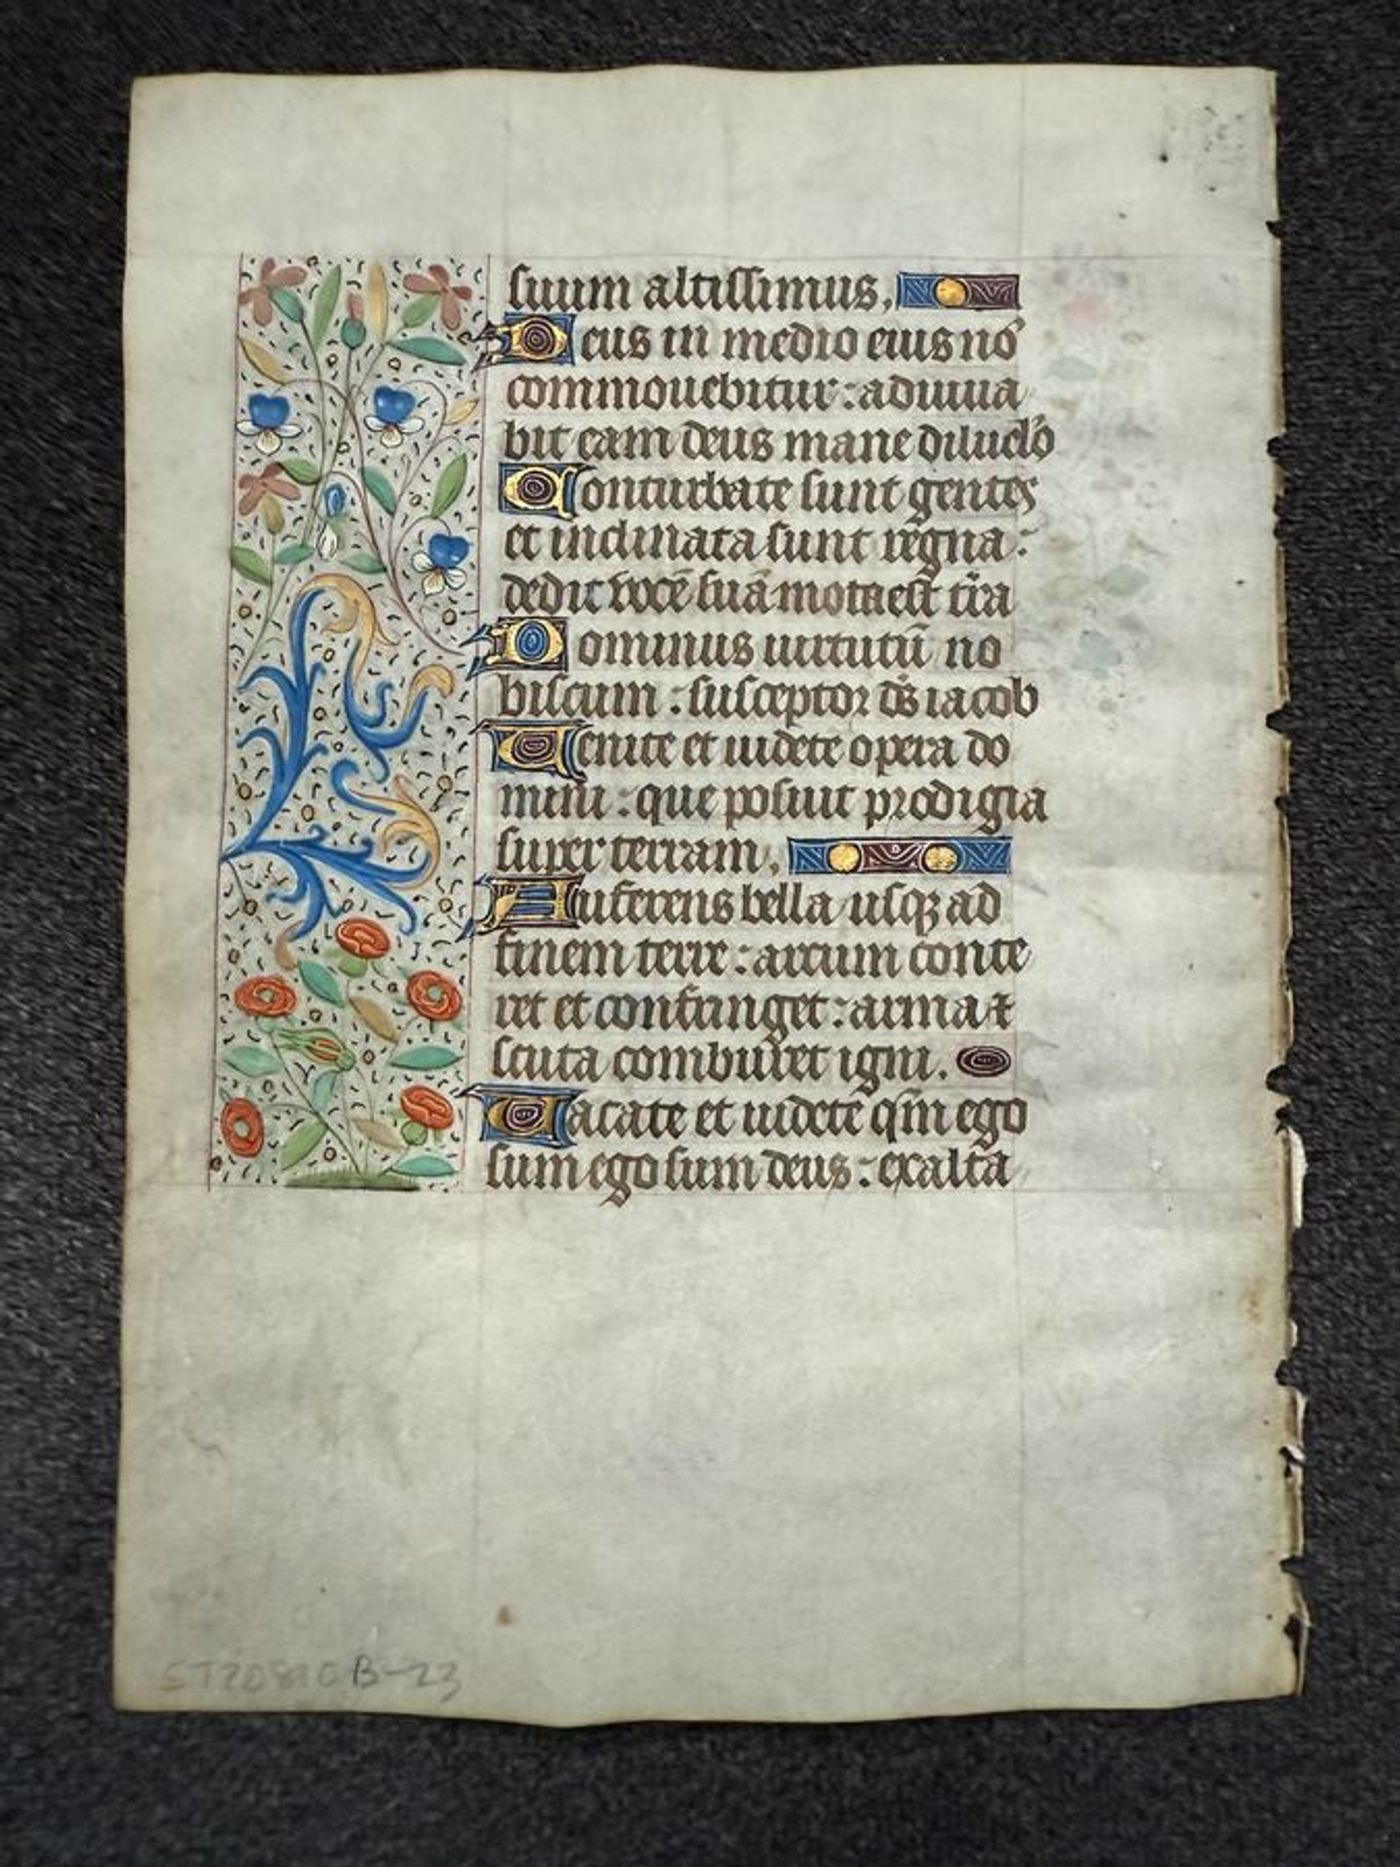 suum altissimus.
Deus in medio eius nō
commouebitur: adiuua
bit eam deus mane diluclō
Conturbate sunt gentes
et inclinata sunt regna:
dedit vocē suā mota est t̄ra
Dominus uirtutū no
biscum: susceptor d̄s iacob
Uenite et uidete opera do
mini: que posuit prodigia
super terram.
Auferens bella usqꝫ ad
finem terre: arcum conte
ret et confringet: arma ⁊
scuta comburet igni.
Uacate et uidete qm̄ ego
sum ego sum deus: exalta